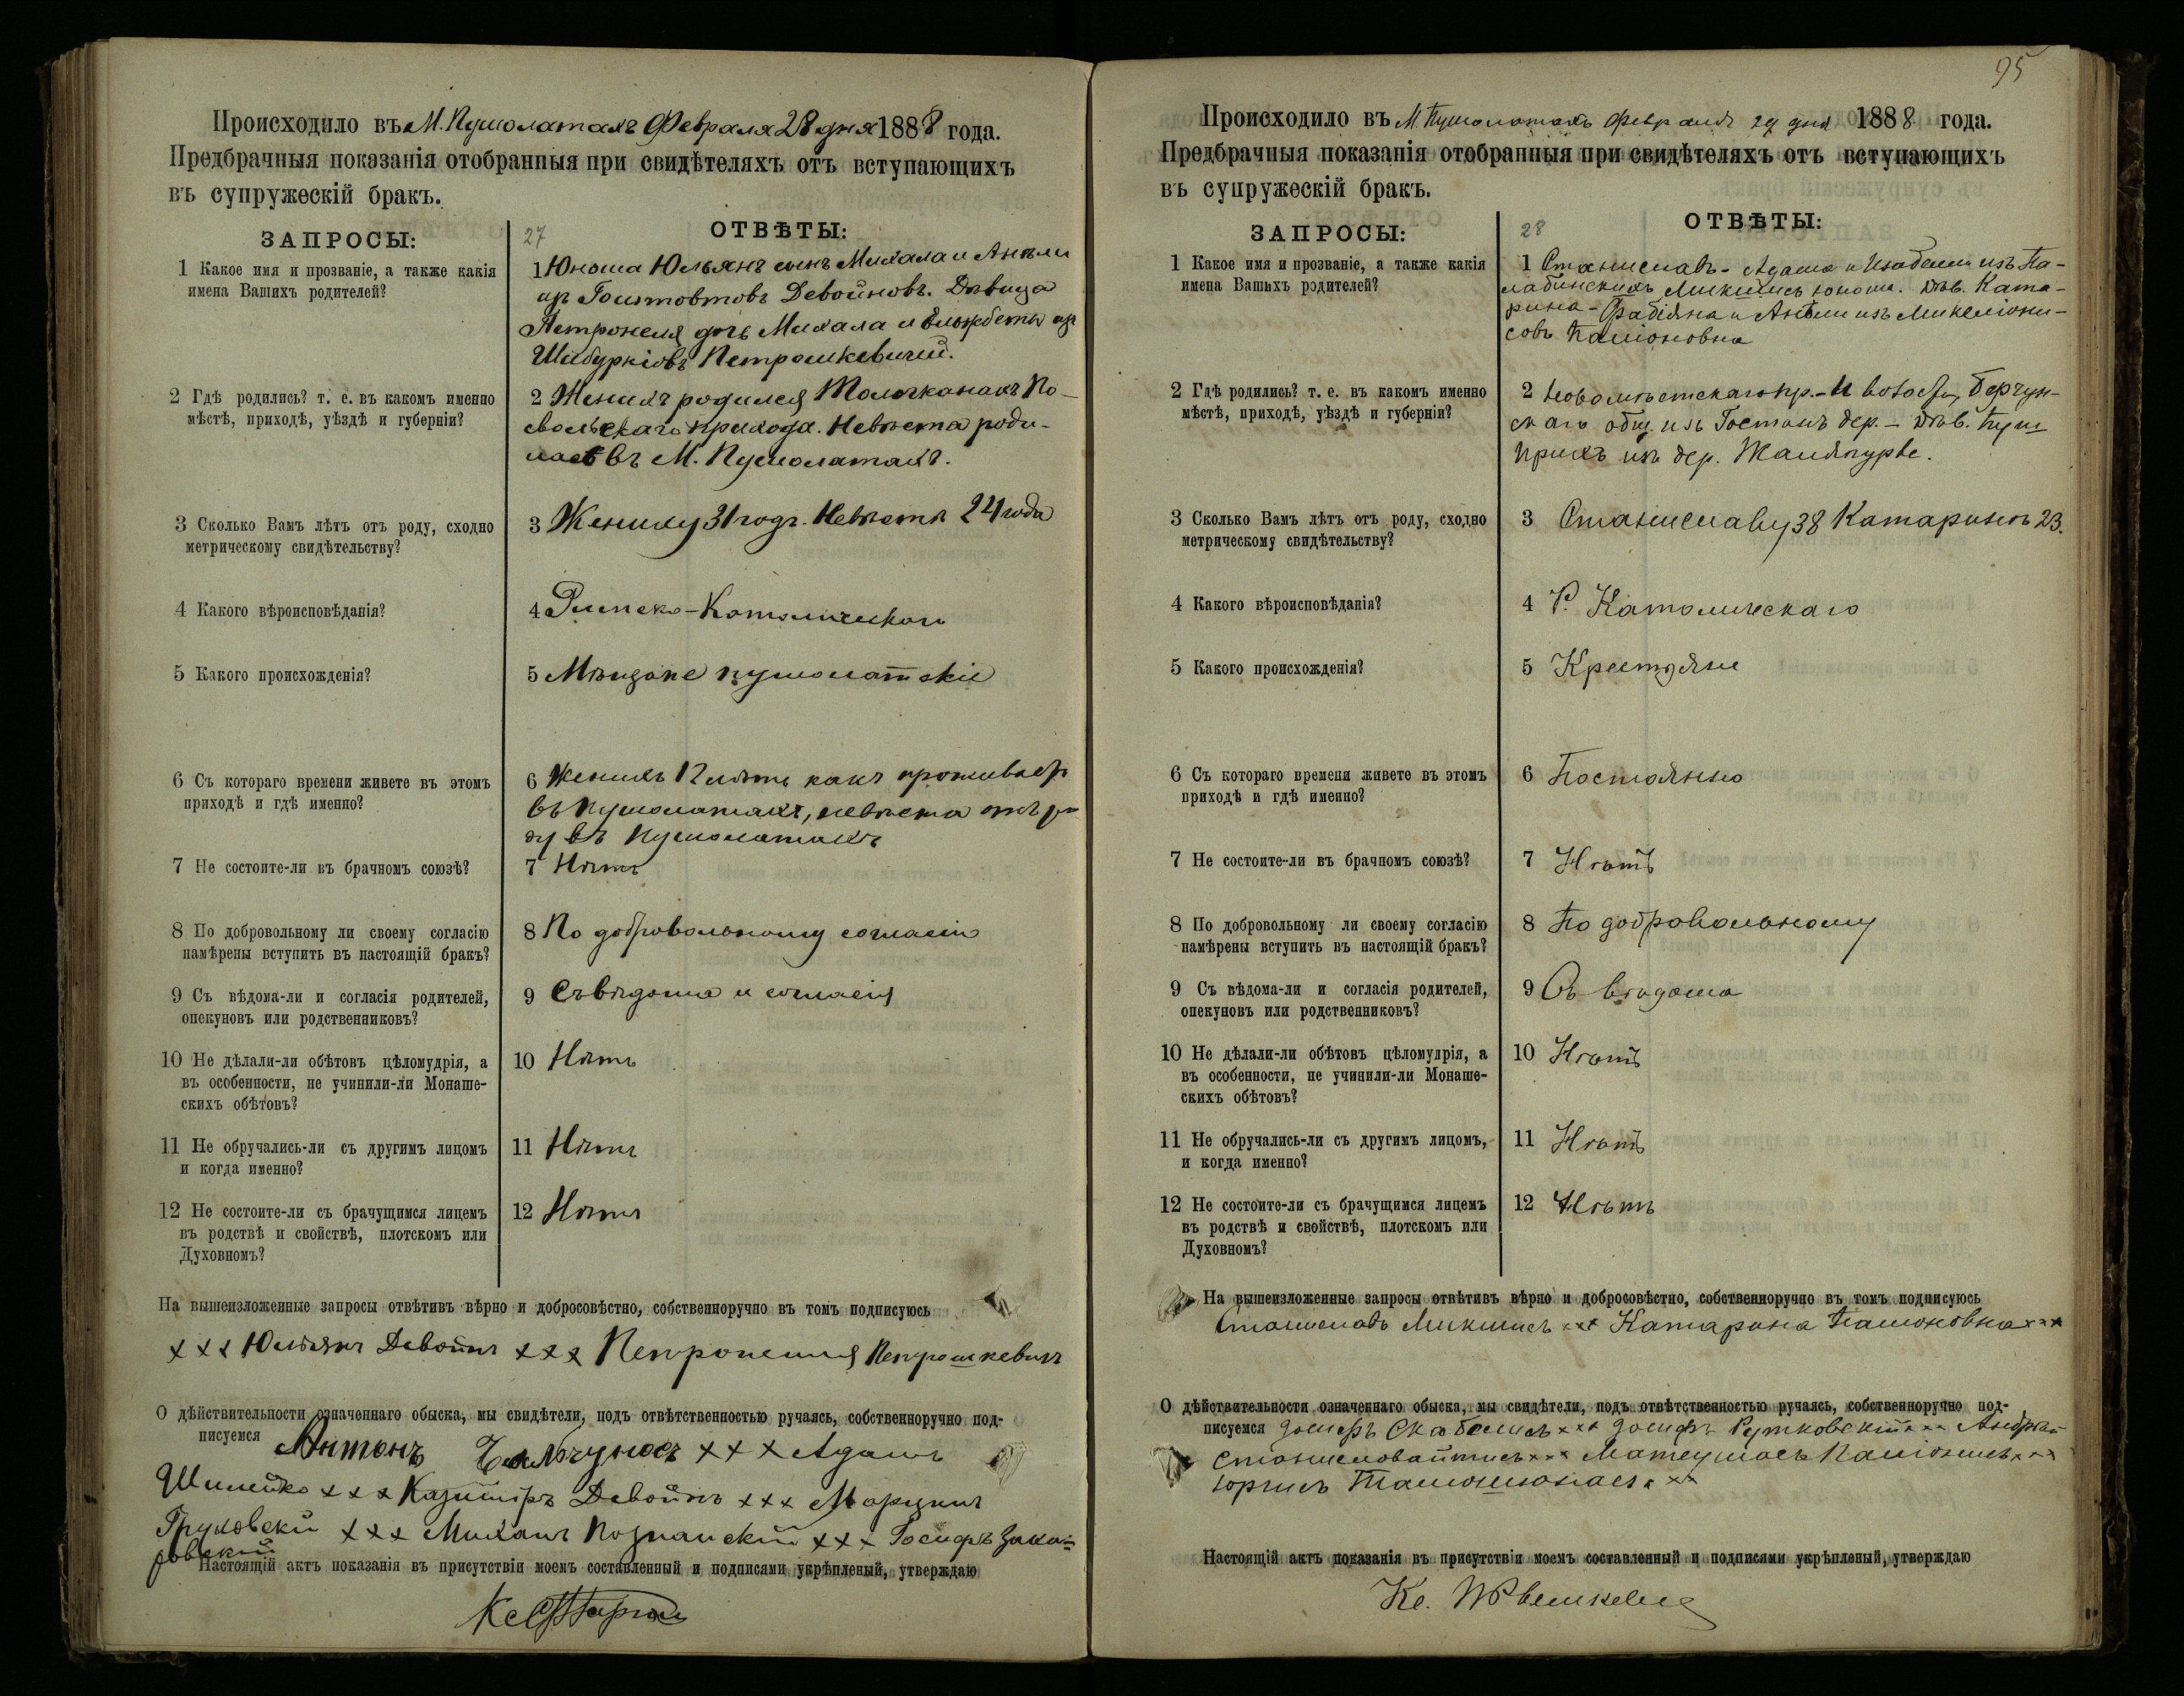 Происходило въ М. Пушолатахъ Февраля 28 дня 1888 года.
Предбрачныя показанія отобранныя при свидѣтеляхъ отъ вступающихъ
въ супружескій бракъ.
ЗАПРОСЫ:
27
ОТВѢТЫ:
1 Какое имя и прозваніе, а также какія
имена Вашихъ родителей?
1 Юноша Юльянъ сынъ Михала и Анели
изъ Гоштовтовъ Девойновъ. Дѣвица
Петронеля дочь Михала и Ельжбеты изъ
Петрошкевичей.
2 Гдѣ родились? т. е. въ какомъ именно
мѣстѣ, приходѣ, уѣздѣ и губерніи?
2 Женихъ родился По-
вольскаго прихода. Невѣста роди-
лась въ М. Пушолатахъ.
3 Сколько Вамъ лѣтъ отъ роду, сходно
метрическому свидѣтельству?
3 Жениху 31 годъ. Невѣстѣ 24 года
4 Какого вѣроисповѣданія?
4 Римско-Католическаго
5 Какого происхожденія?
5 Мѣщане пушолатскіе
6 Съ котораго времени живете въ этомъ
приходѣ и гдѣ именно?
6 Женихъ какъ проживаетъ
въ Пушолатахъ, невѣста отъ ро
ду въ Пушолатахъ
7 Не состоите-ли въ брачномъ союзѣ?
7 Нѣтъ
8 По добровольному ли своему согласію
намѣрены вступить въ настоящій бракъ?
8 По добровольному согласію
9 Съ вѣдома-ли и согласія родителей,
опекуновъ или родственниковъ?
9 Съ вѣдома и согласія
10 Не дѣлали-ли обѣтовъ цѣломудрія, а
въ особенности, не учинили-ли Монаше-
скихъ обѣтовъ?
10 Нѣтъ
11 Не обручались-ли съ другимъ лицомъ
и когда именно?
11 Нѣтъ
12 Не состоите-ли съ брачущимся лицемъ
въ родствѣ и свойствѣ, плотскомъ или
Духовномъ?
12 Нѣтъ
На вышеизложенные запросы отвѣтивъ вѣрно и добросовѣстно, собственноручно въ томъ подписуюсь
××× Юльянъ Девойнъ ××× Петронелия Петрошкевичъ
О дѣйствительности означеннаго обыска, мы свидѣтели, подъ отвѣтственностью ручаясь, собственноручно под-
писуемся Антонъ ××× Адамъ
Шилейко ××× Казимiръ Девойнъ ××× Марцинъ
××× Михаилъ Познанскій ××× Іосифъ
Настоящій актъ показанія въ присутствіи моемъ составленный и подписями укрѣпленый, утверждаю
95
Происходило въ М. Пушолатахъ Февраля 29 дня 1888 года.
Предбрачныя показанія отобранныя при свидѣтеляхъ отъ вступающихъ
въ супружескій бракъ.
ЗАПРОСЫ:
28
ОТВѢТЫ:
1 Какое имя и прозваніе, а также какія
имена Вашихъ родителей?
1 Станиславъ - Адама и Изабели изъ
Микшисъ юноша. Дѣв. Ката-
рина - Фабіяна и Анели изъ
2 Гдѣ родились? т. е. въ какомъ именно
мѣстѣ, приходѣ, уѣздѣ и губерніи?
2 Новомѣстскаго пр. - И волости,
общ. изъ дер. - Дѣв. Пуш
прихъ изъ дер.
3 Сколько Вамъ лѣтъ отъ роду, сходно
метрическому свидѣтельству?
3 Станиславу 38 Катаринѣ 23.
4 Какого вѣроисповѣданія?
4 Р. Католическаго
5 Какого происхожденія?
5 Крестьяне
6 Съ котораго времени живете въ этомъ
приходѣ и гдѣ именно?
6 Постоянно
7 Не состоите-ли въ брачномъ союзѣ?
7 Нѣтъ
8 По добровольному ли своему согласію
намѣрены вступить въ настоящій бракъ?
8 По добровольному
9 Съ вѣдома-ли и согласія родителей,
опекуновъ или родственниковъ?
9 Съ вѣдома
10 Не дѣлали-ли обѣтовъ цѣломудрія, а
въ особенности, не учинили-ли Монаше-
скихъ обѣтовъ?
10 Нѣтъ
11 Не обручались-ли съ другимъ лицомъ,
и когда именно?
11 Нѣтъ
12 Не состоите-ли съ брачущимся лицемъ
въ родствѣ и свойствѣ, плотскомъ или
Духовномъ?
12 Нѣтъ
На вышеизложенные запросы отвѣтивъ вѣрно и добросовѣстно, собственноручно въ томъ подписуюсь
Станиславъ Микшисъ ××× Катарина ×××
О дѣйствительности означеннаго обыска, мы свидѣтели, подъ отвѣтственностью ручаясь, собственноручно под-
писуемся ××× Рутковскій ×××
××× ×××
Юргисъ ×××
Настоящій актъ показанія въ присутствіи моемъ составленный и подписями укрѣпленый, утверждаю